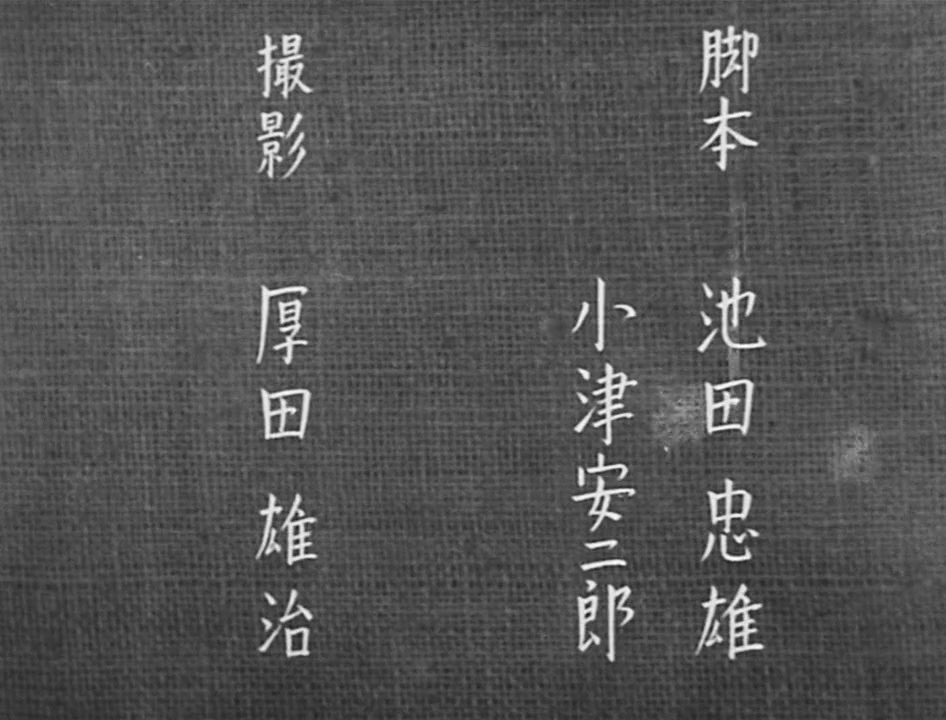 脚本
池田忠雄
小津安二郎
撮影
厚田雄治